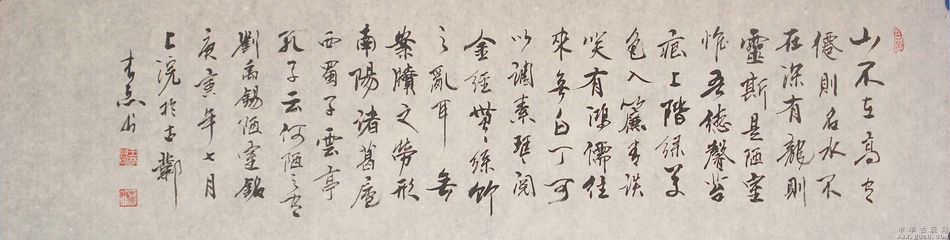 山不在高有
僊則名水不
在深有龍則
靈斯是陋室
惟吾德馨苔
痕上階綠草
色入簾青談
笑有鴻儒往
來無白丁可
以調素琴閱
金經無絲竹
之亂耳無
案牘之勞形
南陽諸葛廬
西蜀子雲亭
孔子云何陋之有
劉禹錫陋室銘
庚寅年七月
上浣於古鄴
中华古玩网
www.guwan.com